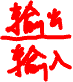 输出
输入